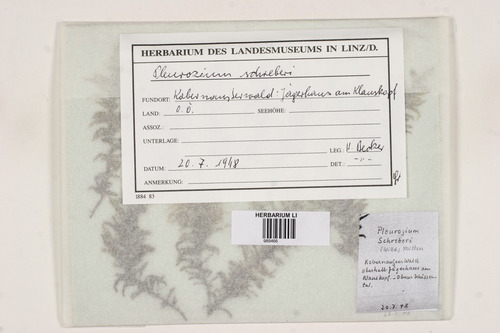 HERBARIUM DES LANDESMUSEUMS IN LINZ/D.
Pleurozium schreberi
FUNDORT: Kobernausserwald: Jägerhaus am Klauskopf
LAND: O.Ö. SEEHÖHE:
ASSOZ.:
UNTERLAGE:
LEG.: H. Becker
DATUM: 20.7.1948 DET.: -"-
ANMERKUNG:
1884 83
HERBARIUM LI
Pleurozium
Schreberi
Mitten
Kobernausser Wald
oberhalb Jägerhaus am
Klauskopf.
tal.
20.7.48